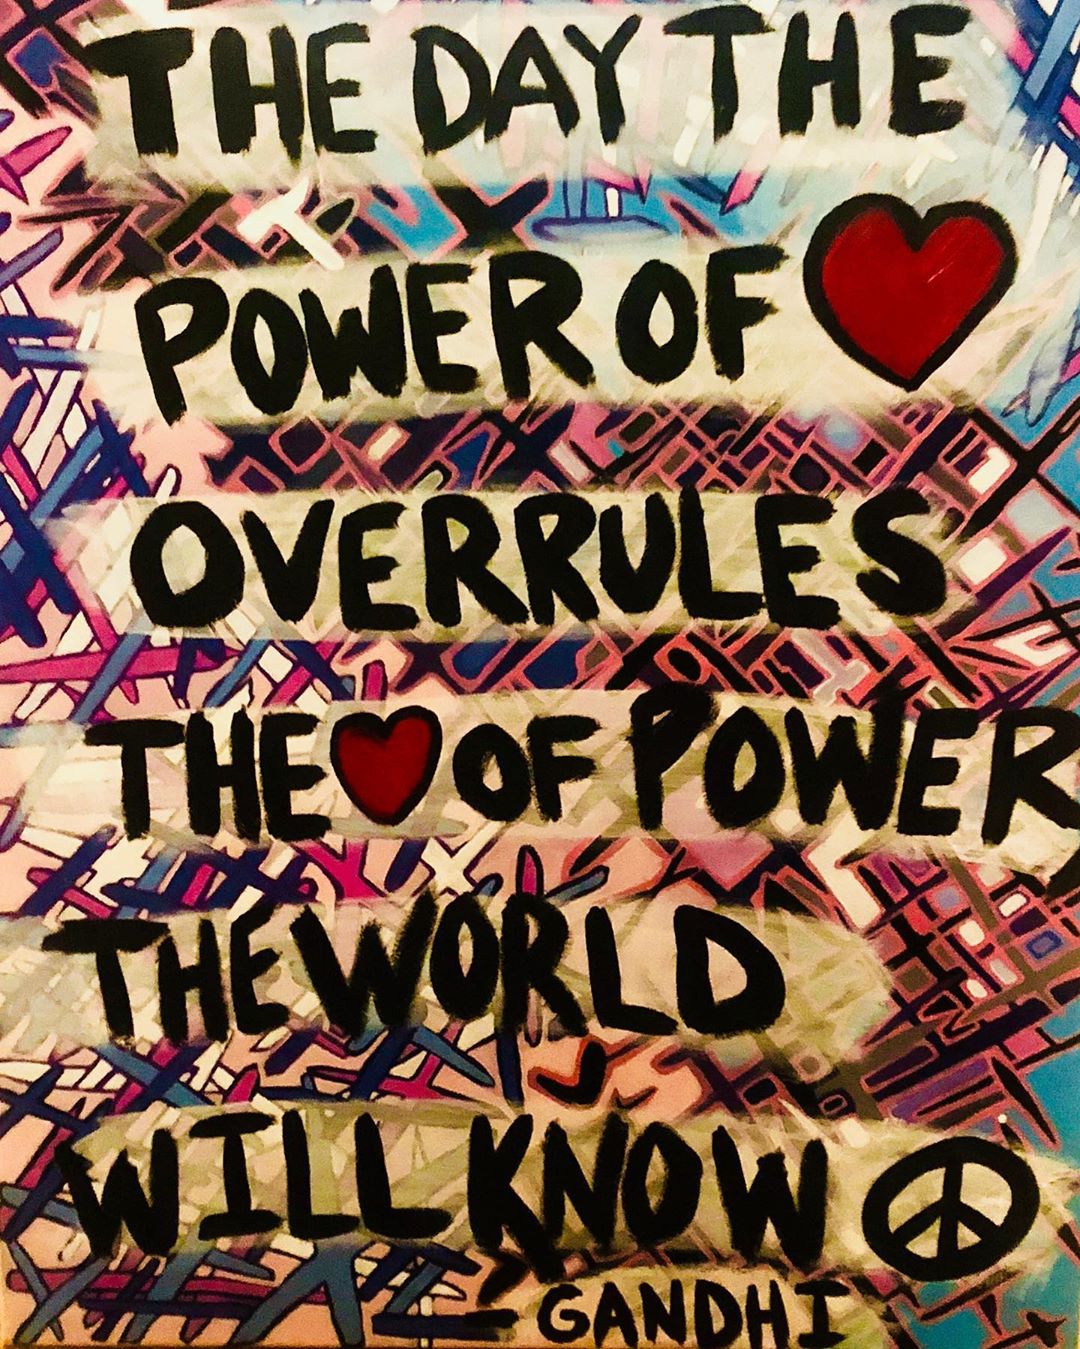 THE DAY THE
POWER OF ❤
OVERRULES
THE ❤ OF POWER,
THE WORLD
WILL KNOW ☮
- GANDHI